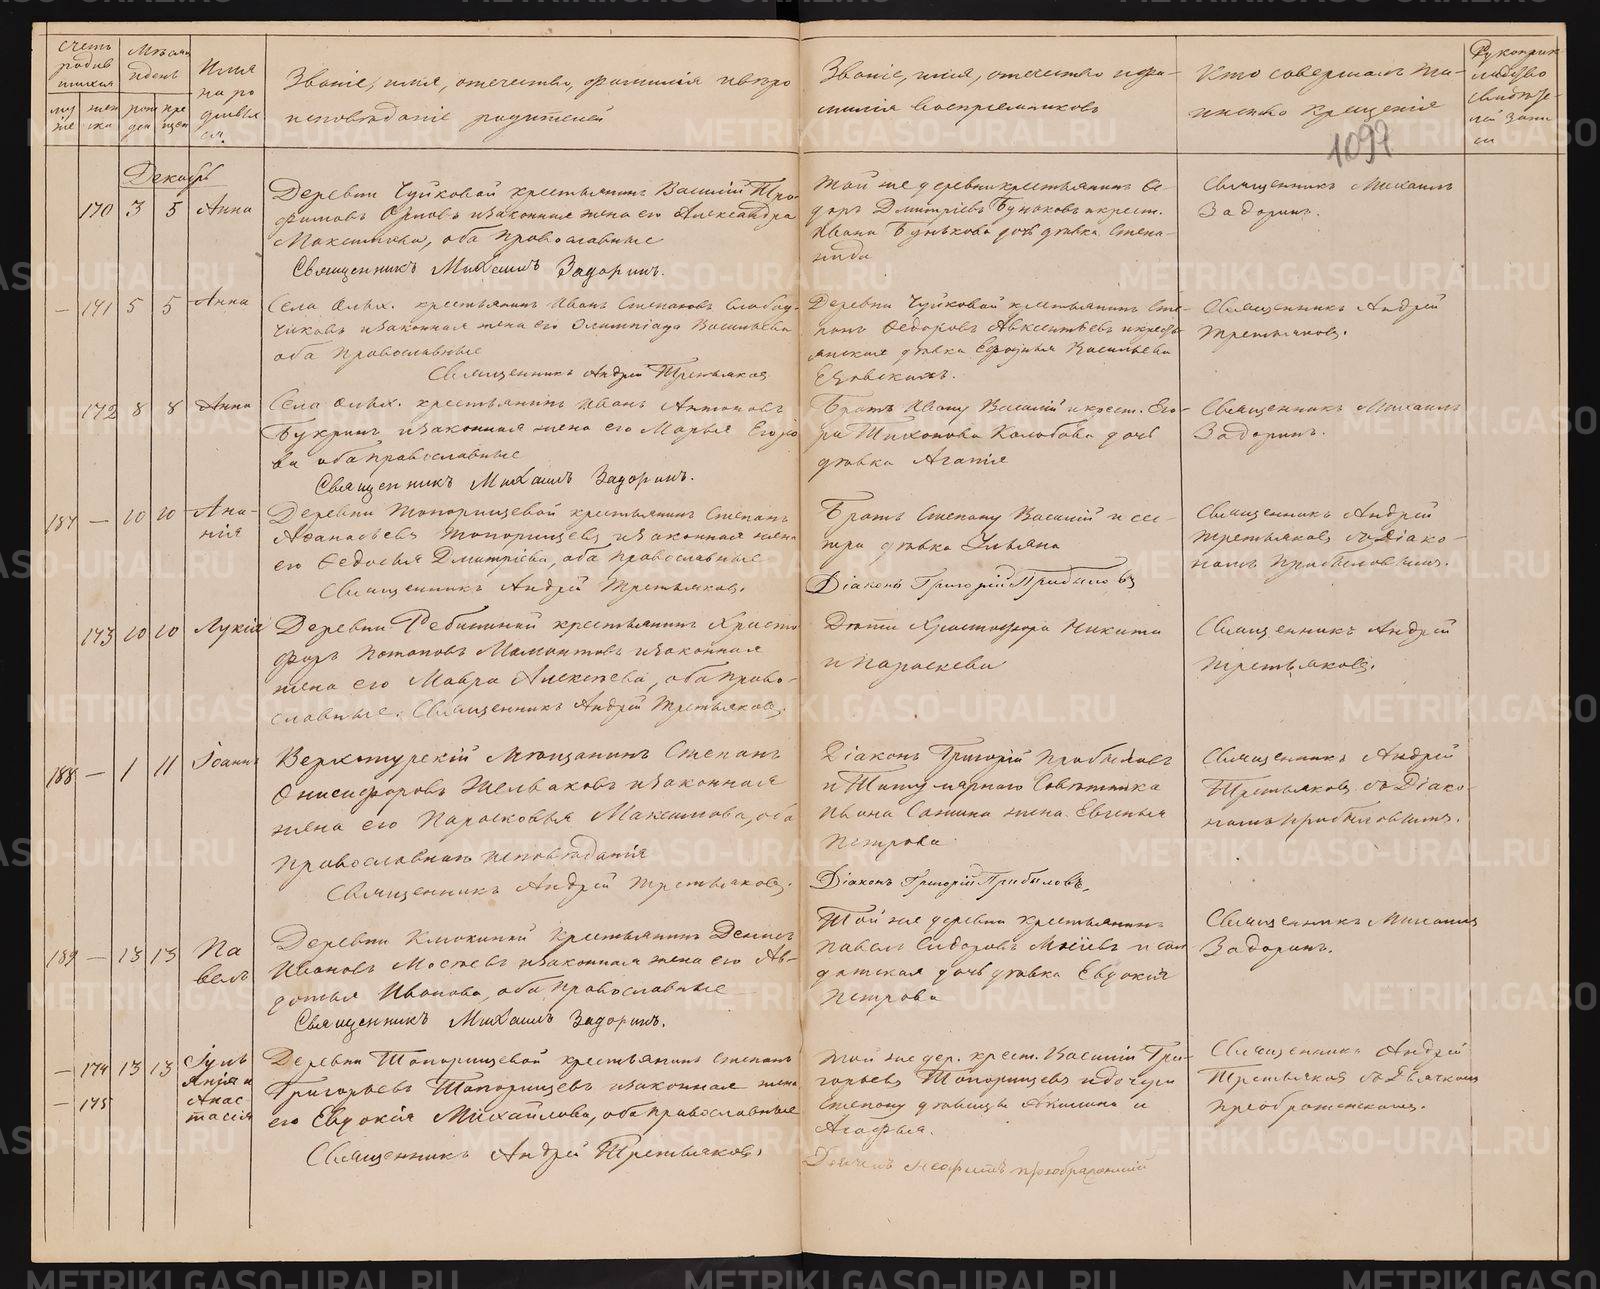 Счетъ родив шихся
му же
жен ска
Мѣсяцъ и день
рож ден
кре щен
Имяна родивых ся.
Званіе, имя, отечество, фамилія и вѣро
исповѣданіе родителей
Званіе, имя, отчество и фа-
милія воспріемниковъ
Кто совершалъ та-
инство крещенія
Рукоприк ладство свидѣте- лей записи
1099
Декабрь
170 3 5 Анна
Деревни Чуйковой крестьянинъ Василій Тро-
фимовъ Орловъ и законная жена его Александра
Максимова, оба православные
Священникъ Михаилъ Задоринъ.
Той же деревни крестьянинъ Ѳе-
доръ Дмитріевъ Буньковъ и крест.
Ивана Бунькова дочь дѣвка Степа-
нида
Священникъ Михаилъ
Задоринъ.
– 171 5 5 Анна
Села онаго. крестьянинъ Иванъ Степановъ Слобод-
чиковъ и законная жена его Олимпіада Васильева
оба православные
Священникъ Андрей Третьяковъ
Деревни Чуйковой крестьянинъ Сте-
панъ Ѳедоровъ Авксентьевъ и кресть-
янская дѣвка Евфросинья Васильева
Священникъ Андрей
Третьяковъ.
172 8 8 Анна
Села онаго. крестьянинъ Иванъ Антоновъ
Букринъ и законная жена его Марья Егоро
ва оба православные
Священникъ Михаилъ Задоринъ.
Братъ Ивану Василій и крест. Его-
ра Тихонова Колобова дочь
дѣвка Агапія
Священникъ Михаилъ
Задоринъ.
187 – 10 10 Ана-
нія
Деревни Топорищевой крестьянинъ Степанъ
Аѳанасьевъ Топорищевъ и законная жена
его Ѳедосья Дмитріева, оба православные
Священникъ Андрей Третьяковъ.
Братъ Степану Василій и сес-
тра дѣвка Ульяна
Діаконъ Григорій Прибыловъ
Священникъ Андрей
Третьяковъ съ Діако-
номъ Прибыловымъ.
173 10 10 Лукія
Деревни Рябининой крестьянинъ Христо
форъ Потаповъ Мамонтовъ и законная
жена его Мавра Алексѣева, оба право-
славные. Священникъ Андрей Третьяковъ.
Дѣти Христофора Никита
и Параскева
Священникъ Андрей
Третьяковъ.
188 – 1 11 Іоаннъ
Верхотурскій мѣщанинъ Степанъ
Онисифоровъ Шельваковъ и законная
жена его Парасковья Максимова, оба
православнаго исповѣданія
Священникъ Андрей Третьяковъ.
Діаконъ Григорій Прибыловъ
и Титулярнаго Совѣтника
Ивана Сотина жена Евгенья
Петрова
Діаконъ Григорій Прибыловъ.
Священникъ Андрей
Третьяковъ съ Діако-
номъ Прибыловымъ.
189 – 13 13 Па
велъ
Деревни Клюкиной крестьянинъ Денисъ
Ивановъ Мосѣевъ и законная жена его Ав-
дотья Иванова, оба православные
Священникъ Михаилъ Задоринъ.
Той же деревни крестьянинъ
Павелъ Сидоровъ Мосѣевъ и сол
датская дочь дѣвка Евдокія
Петрова
Священникъ Михаилъ
Задоринъ.
– 174 13 13 Іуль
янія и
– 175 Анас
тасія
Деревни Топорищевой крестьянинъ Степанъ
Григорьевъ Топорищевъ и законная жена
его Евдокія Михайлова, оба православные
Священникъ Андрей Третьяковъ.
Той же дер. крест. Василій Гри-
горьевъ Топорищевъ и дочери
Степану дѣвицы Акилина и
Агафья.
Дьячекъ Неофитъ Преображенскій
Священникъ Андрей
Третьяковъ съ Дьячкомъ
Преображенскимъ.
METRIKI.GASO-URAL.RU